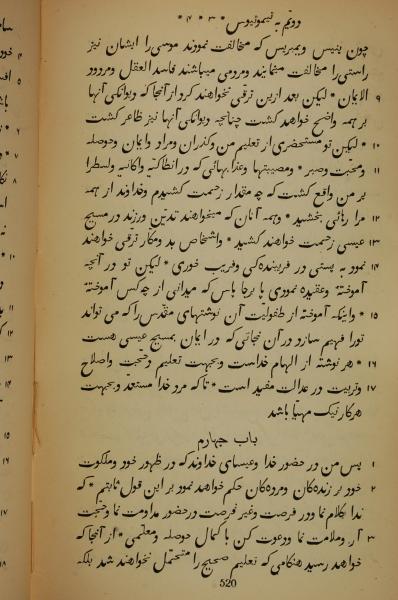 دویّم بـ تیموتیوس * ۳ * ۴ *
چون ینیس ویمبریس که مخالفت نمودند موسی را ایشان نیز
راستی را مخالفت مینمایند ومردمی میباشند فاسد العقل ومردود
۹ الایمان * لیکن بعد ازین ترقی نخواهند کرد از آنجا که دیوانکی آنها
بر همه واضح خواهد کشت چنانچه دیوانکی آنها نیز ظاهر کشت
۱۰ * لیکن تو مستحضری از تعلیم من وکذران ومراد وایمان وحوصله
۱۱ ومحبّت وصبر * ومصیبتها وعذابهائی که در انطاکیّه واکانیه ولسطرا
بر من واقع کشت که چه مقدار زحمت کشیدم وخداوند از همه
۱۲ مرا رهائی بخشید * وهمه آنان که میخواهند تدیّن ورزند در مسیح
۱۳ عیسی زحمت خواهند کشید * واشخاص بد ومکّار ترقی خواهند
۱۴ نمود به پستی در فریبنده کی وفریب خوری * لیکن تو در آنچه
آموختهٔ وعقیده نمودی پا برجا باش که میدانی از چه کس آموختهٔ
۱۵ * واینکه آموختهٔ از طفولیّت آن نوشتهای مقدّس را که می تواند
تورا فهیم سازد در آن نجاتی که در ایمان بمسیح عیسی هست
۱۶ * هر نوشتهٔ از الهام خداست وبجهت تعلیم وحجّت واصلاح
۱۷ وتربیت در عدالت مفید است * تا که مرد خدا مستعد وبجهت
هر کار نیک مهیّا باشد
باب چهارم
۱ پس من در حضور خدا وعیسای خداوند که در ظهور خود وملکوت
۲ خود بر زنده کان ومرده کان حکم خواهد نمود بر این قول ثابتم * که
ندا بکلام نما ودر فرصت وغیر فرصت در حضور مداومت نما وحجّت
۳ آر وملامت نما ودعوت کن با کمال حوصله ومعلّمی * از آنجا که
خواهد رسید هنکامی که تعلیم صحیح را متحمّل نخواهند شد بلکه
520